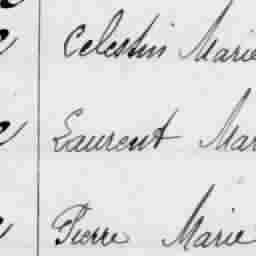 Celestin Marie
Laurent Mar
Pierre Marie